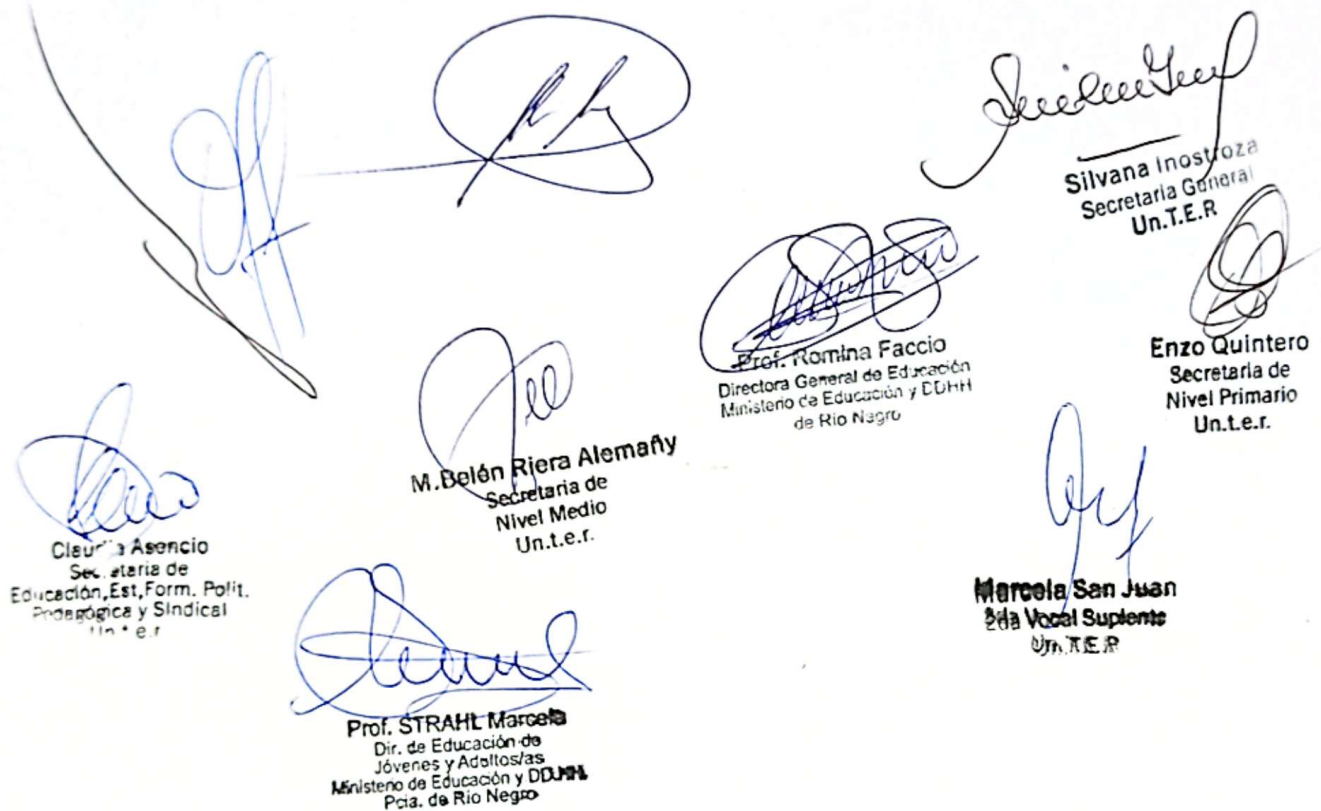 Silvana Inostroza
Secretaria General
Un.T.E.R
Prof. Romina Faccio
Directora General de Educación
Ministerio de Educación y DDHH
de Rio Negro
Enzo Quintero
Secretaria de
Nivel Primario
Un.t.e.r.
M.Belén Riera Alemañy
Secretaria de
Nivel Medio
Un.t.e.r.
Claudia Asencio
Secretaria de
Educación,Est,Form. Polit.
Pedagógica y Sindical
Un.t.e.r
Marcela San Juan
2da Vocal Suplente
Un.T.E.R
Prof. STRAHL Marcela
Dir. de Educación de
Jóvenes y Adultos/as
Ministerio de Educación y DDHH
Pcia. de Rio Negro